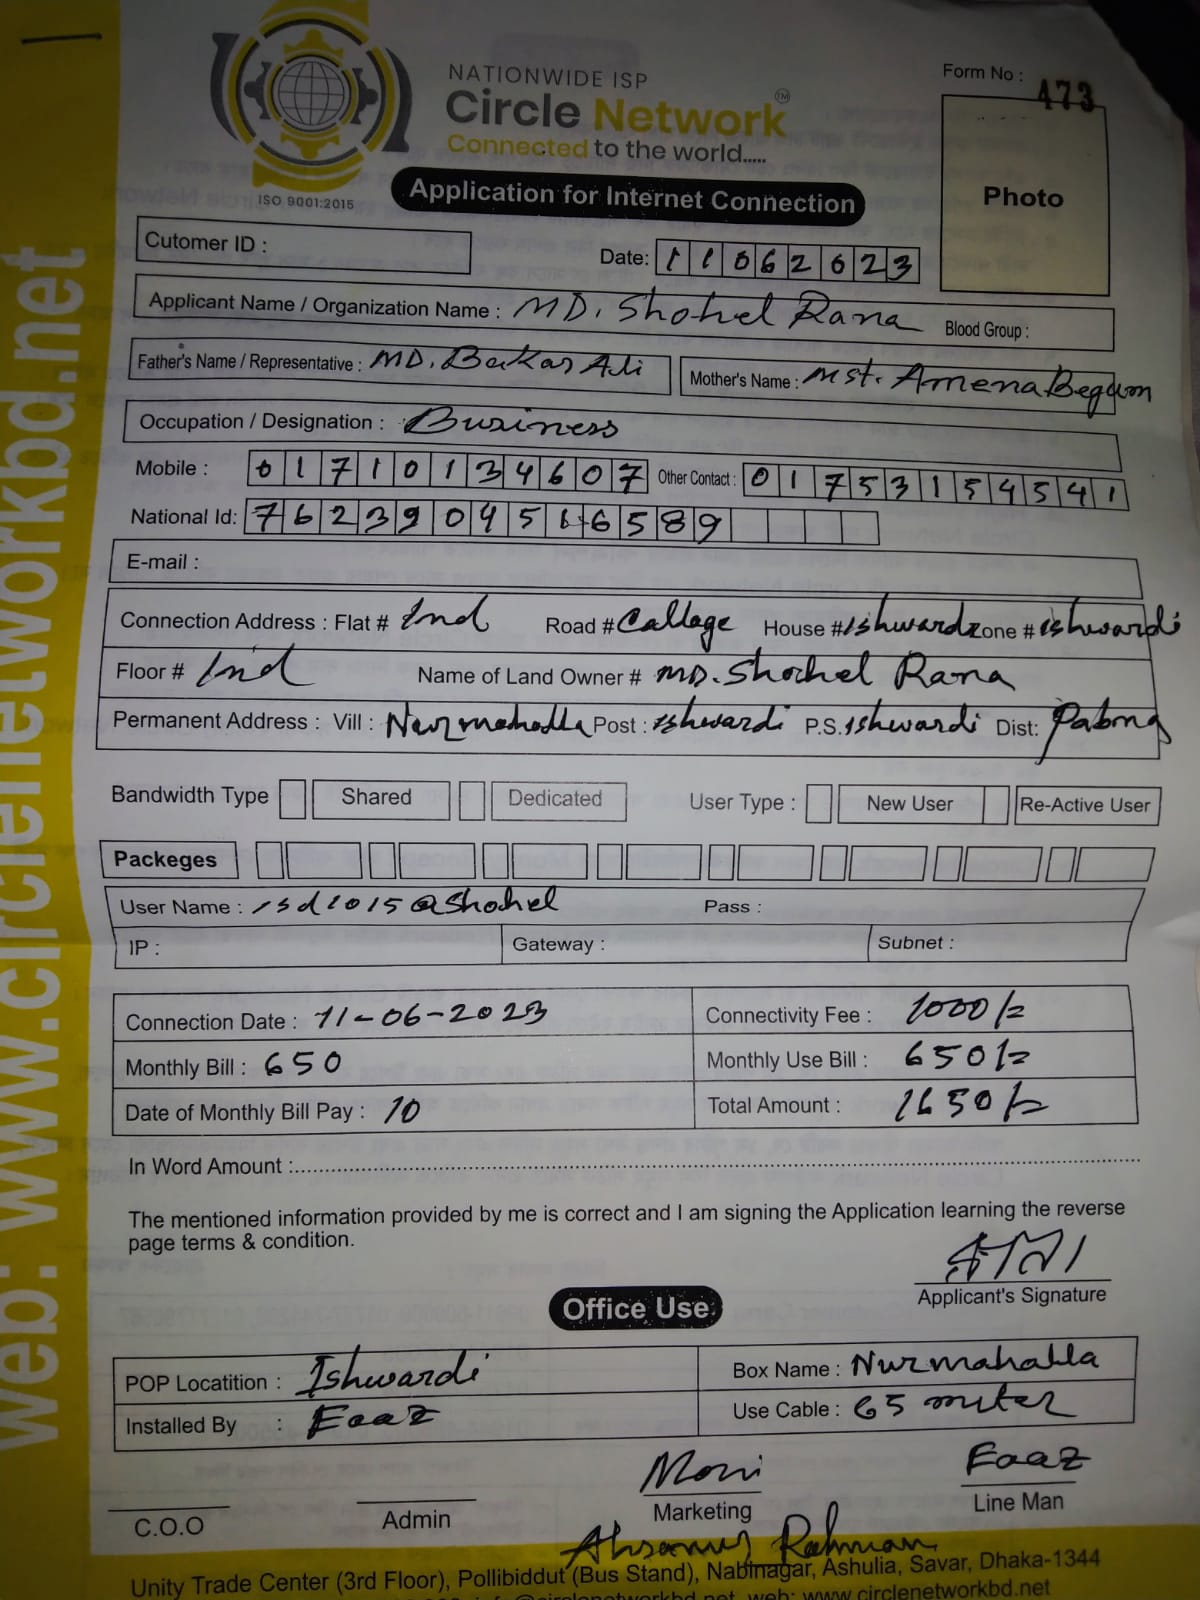 Form No : 473
NATIONWIDE ISP
Circle Network TM
Connected to the world.....
ISO 9001:2015
Application for Internet Connection
Photo
Cutomer ID :
Date: 11062023
Applicant Name / Organization Name : MD. Shohel Rana Blood Group :
Father's Name / Representative : MD. Bakar Ali Mother's Name : Mst. Amena Begum
Occupation / Designation : Business
Mobile : 01710134607 Other Contact : 01753154541
National Id: 7623904516589
E-mail :
Connection Address : Flat # Ind Road # Callage House # Ishwardi Zone # ishwardi
Floor # Ind Name of Land Owner # MD. Shohel Rana
Permanent Address : Vill : Nurmahalla Post : ishwardi P.S. Ishwardi Dist: Pabna
Bandwidth Type Shared Dedicated User Type : New User Re-Active User
Packeges
User Name : isd1015@Shohel Pass :
IP : Gateway : Subnet :
Connection Date : 11-06-2023 Connectivity Fee : 1000/=
Monthly Bill : 650 Monthly Use Bill : 650/=
Date of Monthly Bill Pay : 10 Total Amount : 1650/=
In Word Amount :
The mentioned information provided by me is correct and I am signing the Application learning the reverse
page terms & condition.
রানা
Applicant's Signature
Office Use
POP Locatition : Ishwardi Box Name : Nurmahalla
Installed By : Eaaz Use Cable : 65 miter
Moni Eaaz
C.O.O Admin Marketing Line Man
Rahman
Unity Trade Center (3rd Floor), Pollibiddut (Bus Stand), Nabinagar, Ashulia, Savar, Dhaka-1344
web: www.circlenetworkbd.net
web: www.circlenetworkbd.net